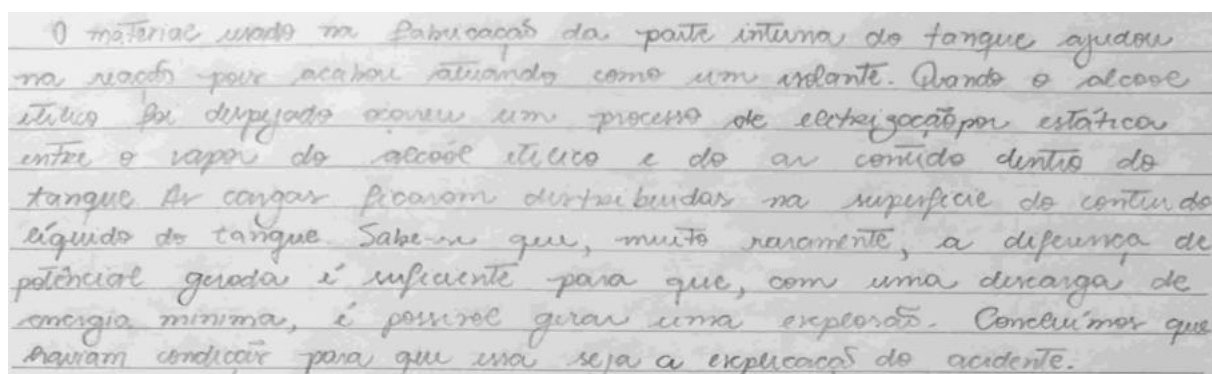 O material usado na fabricação da parte interna do tanque ajudou
na reação pois acabou atuando como um isolante. Quando o alcool
etilico foi despejado ocorreu um processo de eletrização por estática
entre o vapor do alcool etilico e do ar contido dentro do
tanque As cargas ficaram distribuidas na superficie do conteudo
líquido do tanque. Sabe-se que, muito raramente, a diferença de
potêncial gerada é suficiente para que, com uma descarga de
energia minima, é possivel gerar uma explosão. Concluímos que
haviam condições para que essa seja a explicação do acidente.